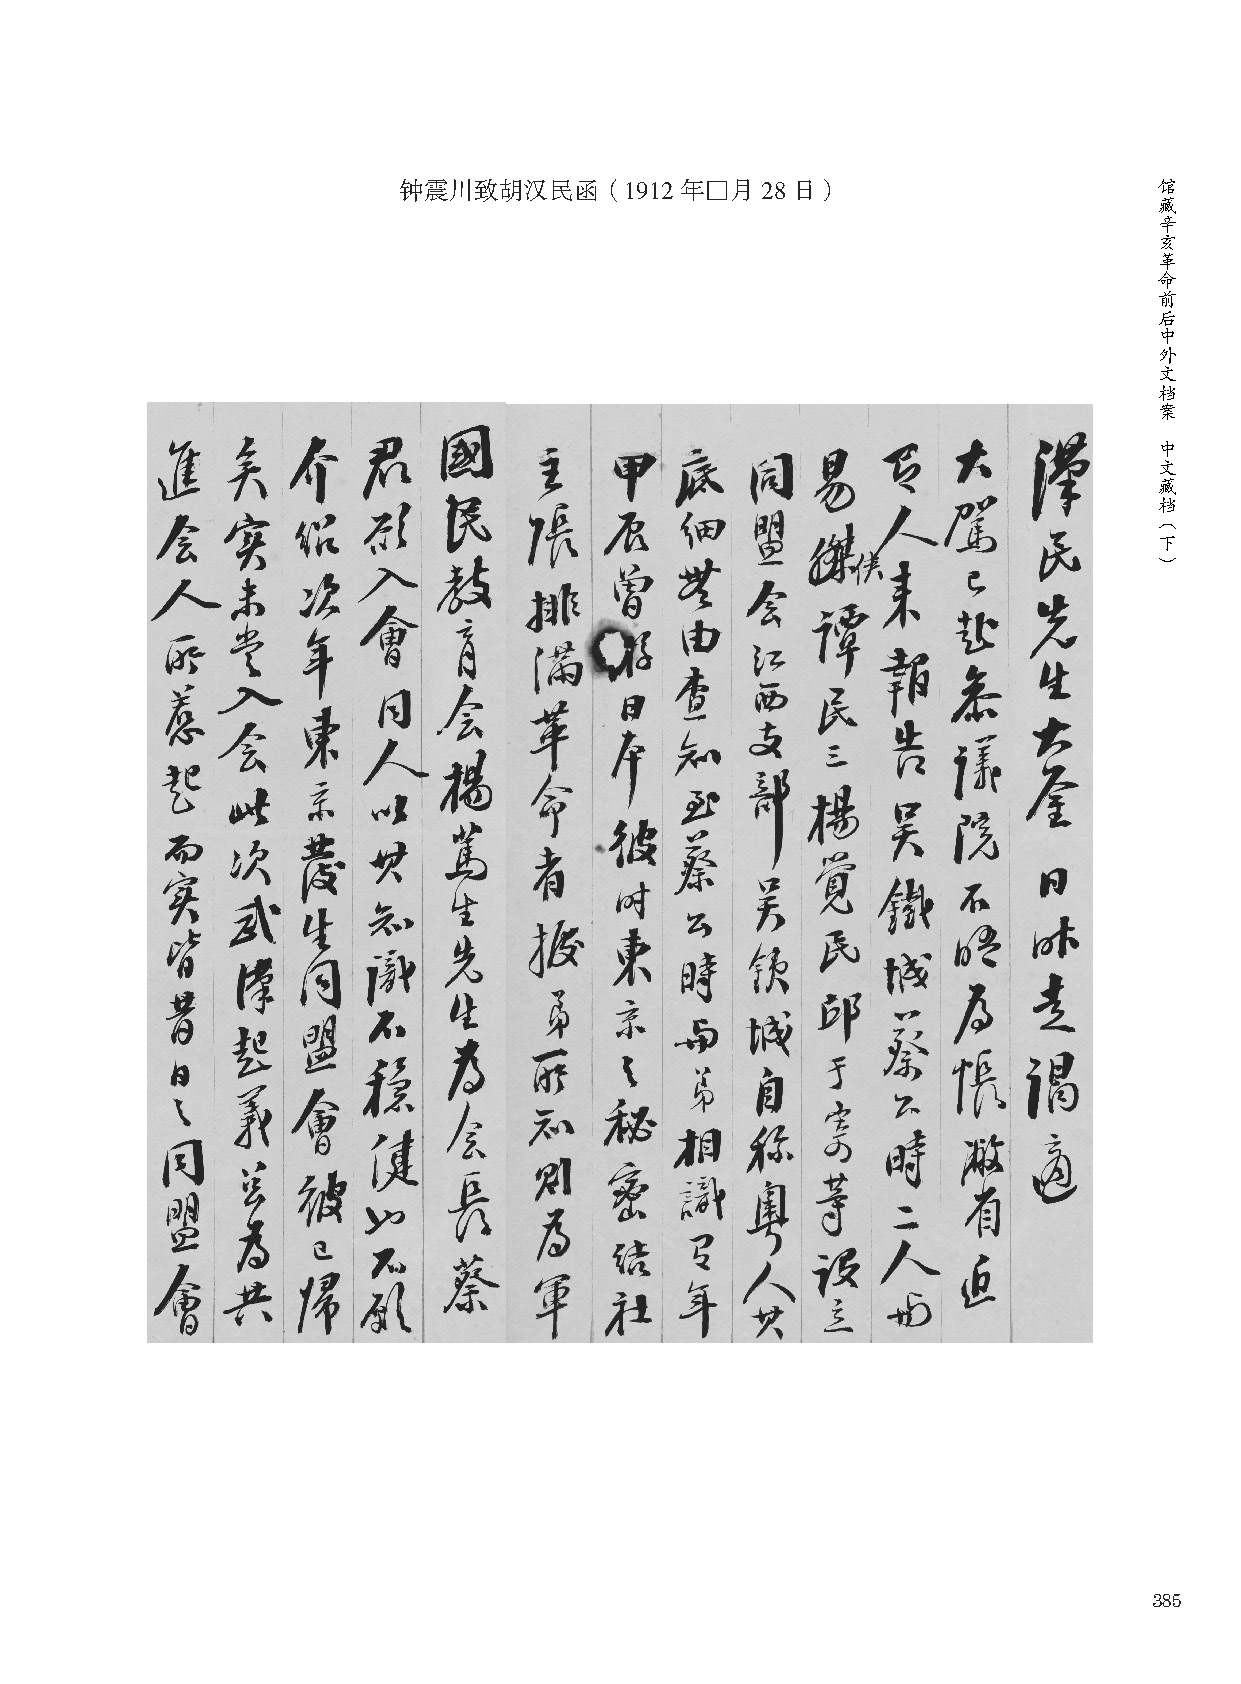 钟震川致胡汉民函（1912 年□月 28 日）
馆藏辛亥革命前后中外文档案 中文藏档（下）
漢民先生大鉴日昨走謁適
大駕已赴叅議院不晤為悵敝省近
有人来報告吴鐵城蔡公時二人与
易燦侯譚民三楊覺民邱于寄等設立
同盟会江西支部吴鉄城自称粤人其
底细無由查知至蔡公時与弟相識有年
甲辰曾游日本彼时東京之秘密结社
主張排满革命者據弟所知則為軍
國民教育会楊篤生先生為会長蔡
君欲入會同人以其知識不穏健比不願
介绍次年東京發生同盟會彼已歸
矣实未尝入会此次武漢起義岂為共
進会人所惹起而实皆昔日之同盟會
385